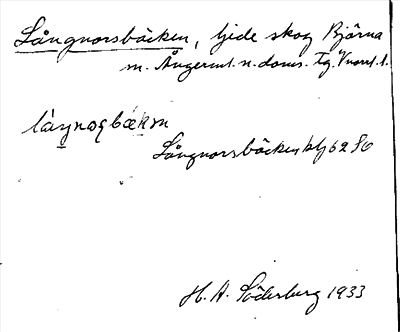 Långnorsbäcken, Gide skog Björna
sn. Ångerml. n. doms. Tg. V norrl. l.
Långnorsbäcken blj 62 S6
H. A. Söderberg 1933